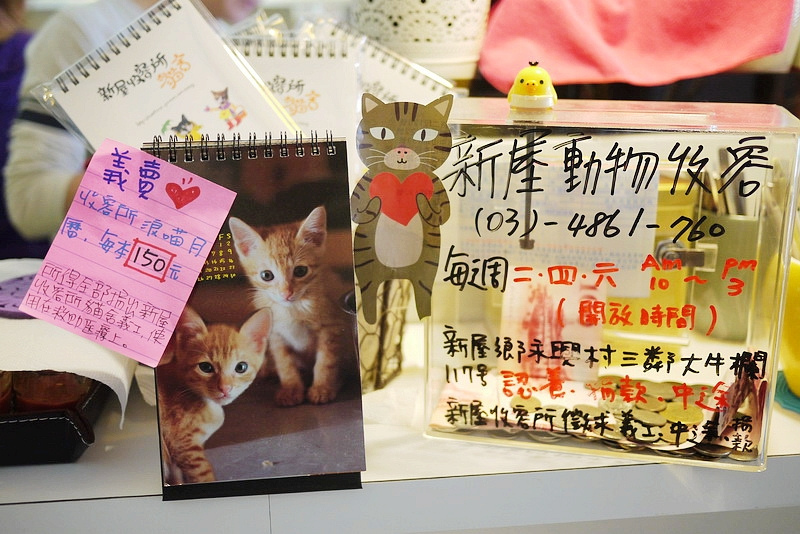 新屋收容所
義賣
收容所浪喵月
曆，每本150元
所得全部捐出新屋
收容所貓舍義工，使
用在救助醫療上。
新屋動物收容
(03)-4861-760
每週二.四.六 Am 10~pm 3
(開放時間)
新屋鄉永興村三鄰大牛欄
117号 認養.捐款.中途
新屋收容所徵求義工.中途.捐款